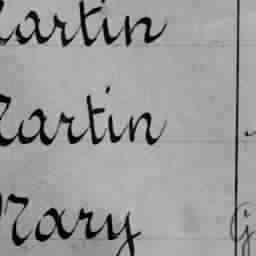 Martin
Martin
Mary